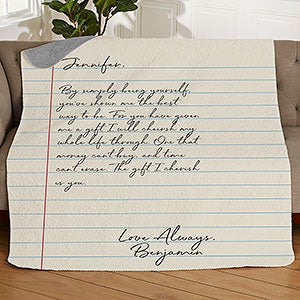 Jennifer,
By simply being yourself,
you've shown me the best
way to be. For you have given
me a gift I will cherish my
whole life through. One that
money can't buy, and time
can't erase. The gift I cherish
is you.
Love Always,
Benjamin